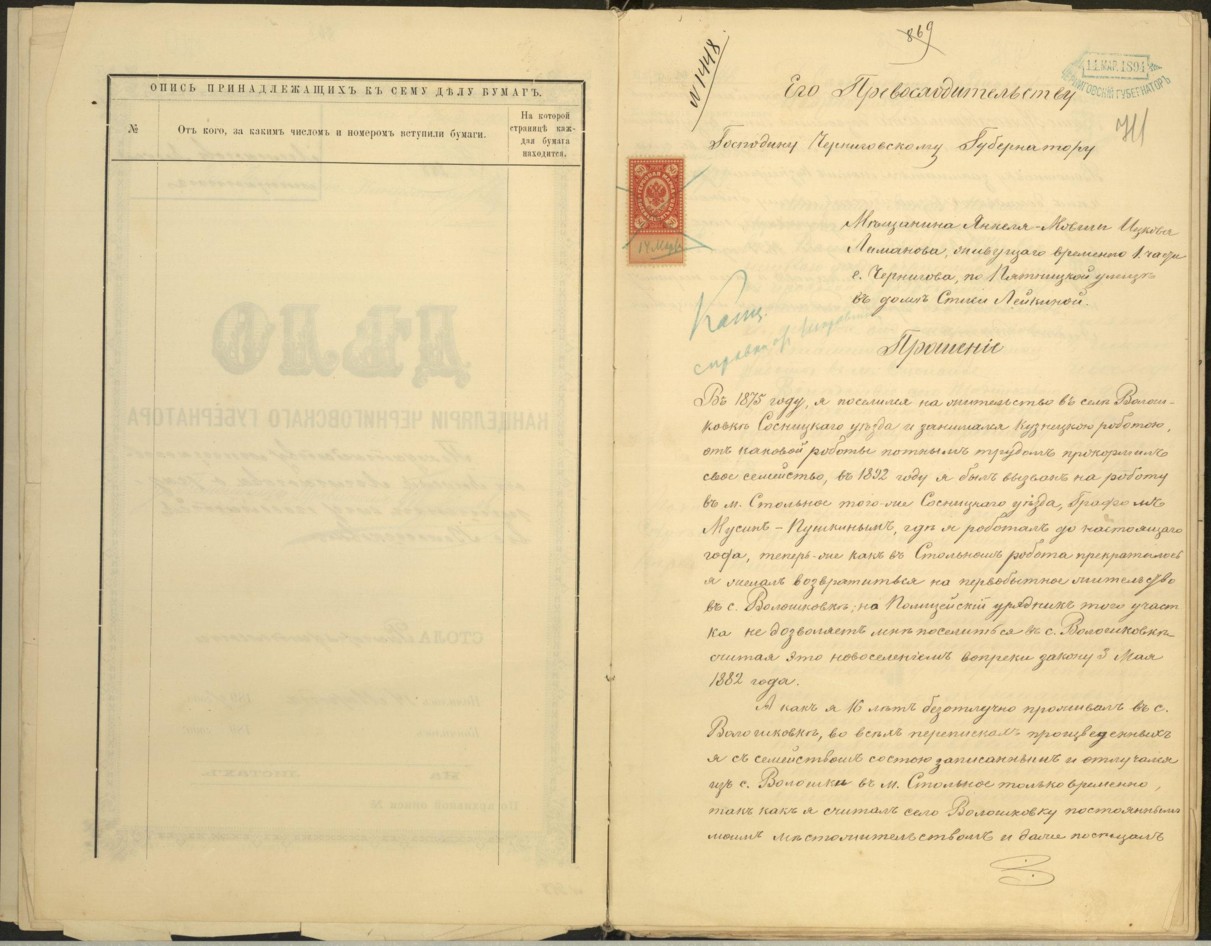 ОПИСЬ ПРИНАДЛЕЖАЩИХЪ КЪ СЕМУ ДѢЛУ БУМАГЪ.
№
Отъ кого, за какимъ числомъ и номеромъ вступили бумаги.
На которой
страницѣ каж-
дая бумага
находится.
ДѢЛО
КАНЦЕЛЯРІИ ЧЕРНИГОВСКАГО ГУБЕРНАТОРА
СТОЛА
НА ЛИСТАХЪ
№ 1448.
869
11. МАР. 1894
ЧЕРНИГОВСКІЙ ГУБЕРНАТОРЪ
Его Превосходительству
Господину Черниговскому Губернатору
14 Мар
Мѣщанина Янкеля-Мовши Ицкова
Лиманова, живущаго временно 1. части
г. Чернигова, по Пятницкой улицѣ
въ домѣ Стиси Лейкиной.
Прошеніе
Въ 1875 году, я поселился на жительство въ селѣ Волош-
ковкѣ Сосницкаго уѣзда и занимался Кузницкою роботою,
отъ каковой роботы потнымъ трудомъ прокормилъ
свое семейство, въ 1892 году я былъ вызванъ на роботу
въ м. Стольное того-же Сосницкаго уѣзда, Графомъ
Мусинъ-Пушкинымъ, гдѣ я роботалъ до настоящаго
года, теперь-же какъ въ Стольномъ робота прекратилось
я желалъ возвратиться на первобытное жительство
въ с. Волошковкѣ, но Полицейскій урядникъ того участ
ка не дозволяетъ мнѣ поселиться въ с. Волошковкѣ
считая это новоселеніемъ вопреки закону 3 Мая
1882 года.
А какъ я 16 лѣтъ безотлучно проживалъ въ с.
Волошковкѣ, во всѣхъ перепискахъ произведенныхъ
я съ семействомъ состою записаннымъ и отлучался
изъ с. Волошки въ м. Стольное только временно,
такъ какъ я считалъ село Волошковку постояннымъ
моимъ мѣстожительствомъ и даже посѣщалъ